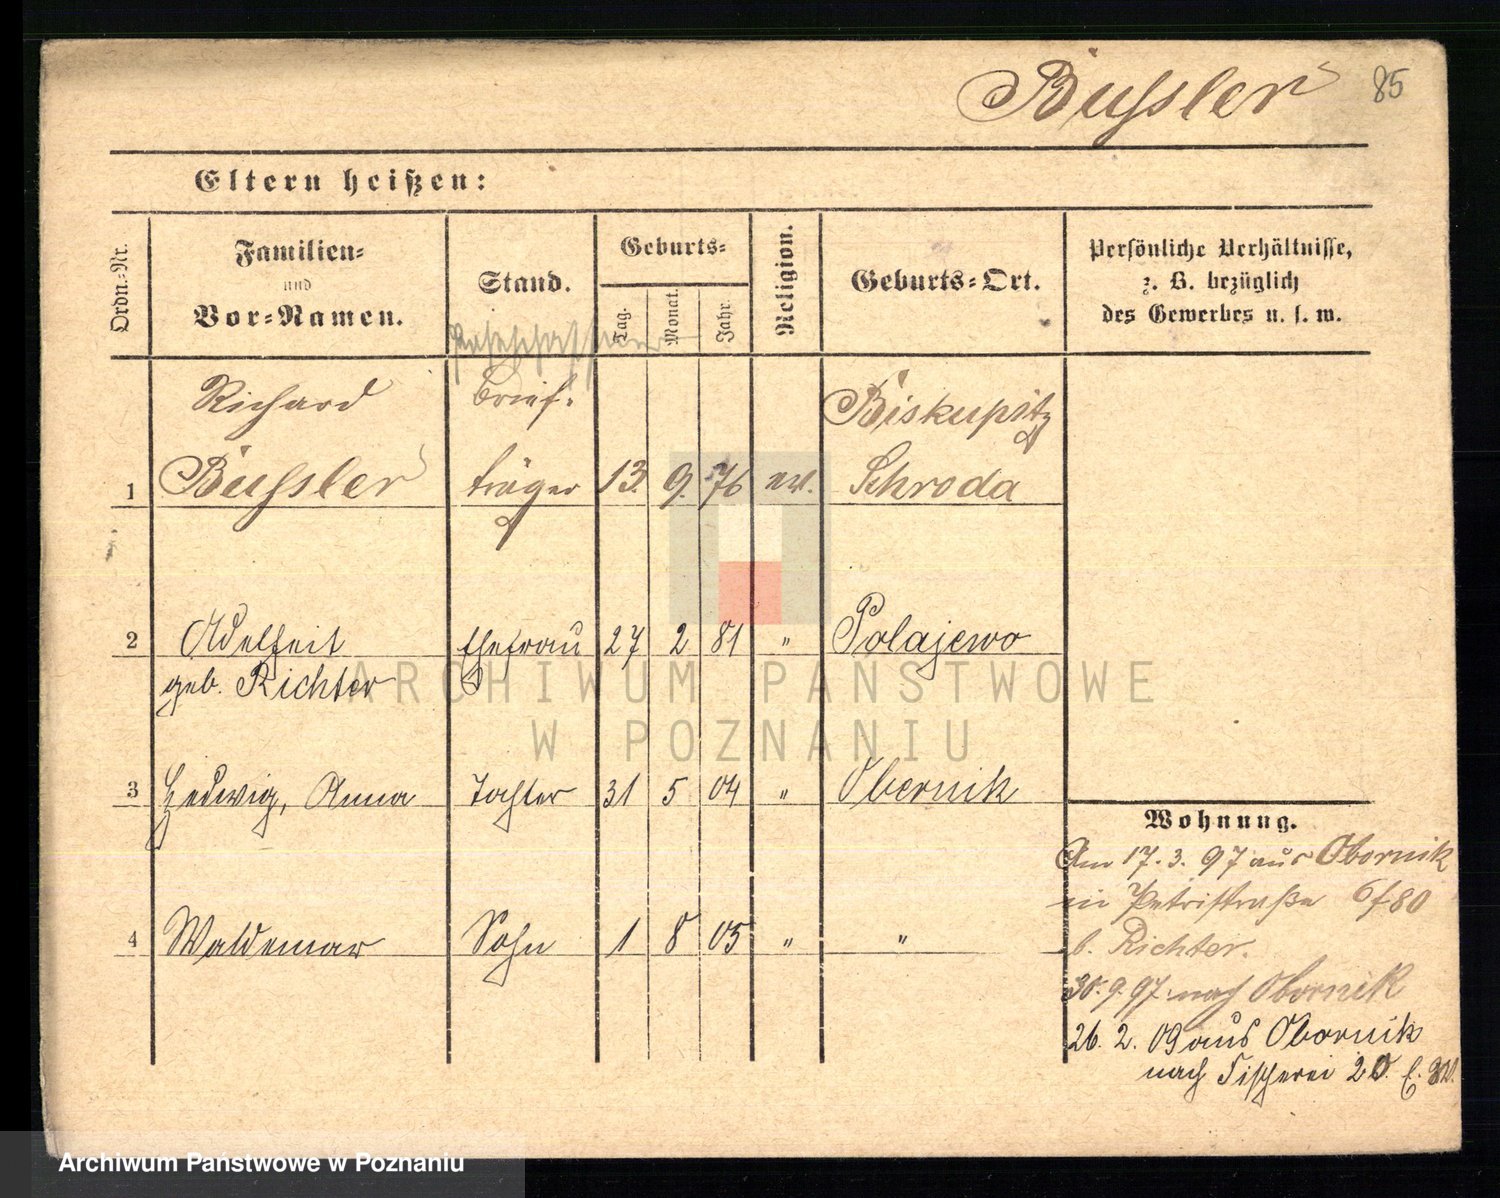 Bussler 85
Eltern heißen:
Ordn.-Nr.
Familien-
und
Vor-Namen.
Stand.
Geburts-
Tag.
Monat.
Jahr.
Religion.
Geburts-Ort.
Persönliche Verhältnisse,
z. B. bezüglich
des Gewerbes u. s. w.
Richard Brief- Biskupitz
1 Bussler träger 13. 9. 76 ev. Schroda
2 Adelheit Ehefrau 27 2 81 " Polajewo
geb. Richter
3 Hedwig, Anna Tochter 31 5 04 " Obernik
4 Waldemar Sohn 1 8 05 " "
Wohnung.
Am 17. 3. 97 aus Obornik
in Petristraße 6/80
b. Richter.
30. 9. 97 nach Obornik
26. 2. 09 aus Obornik
nach Fischerei 20.
ARCHIWUM PAŃSTWOWE
W POZNANIU
Archiwum Państwowe w Poznaniu